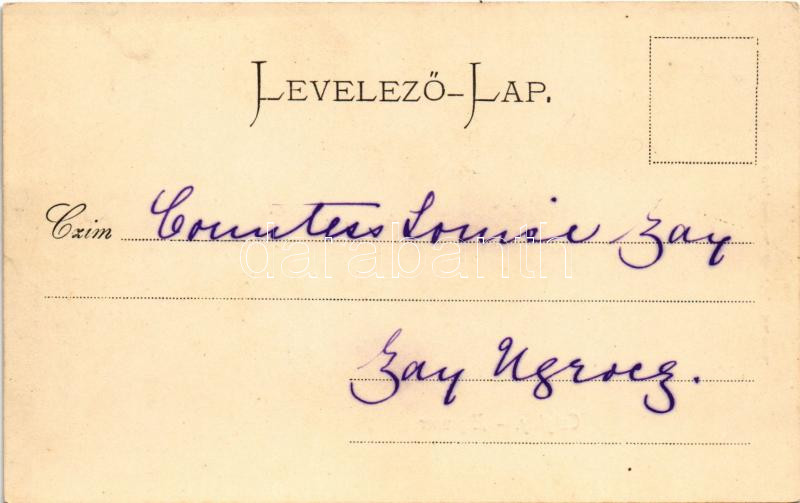 LEVELEZŐ-LAP.
Czim Countess Louise Zay
darabanth
Zay Ugrocz.